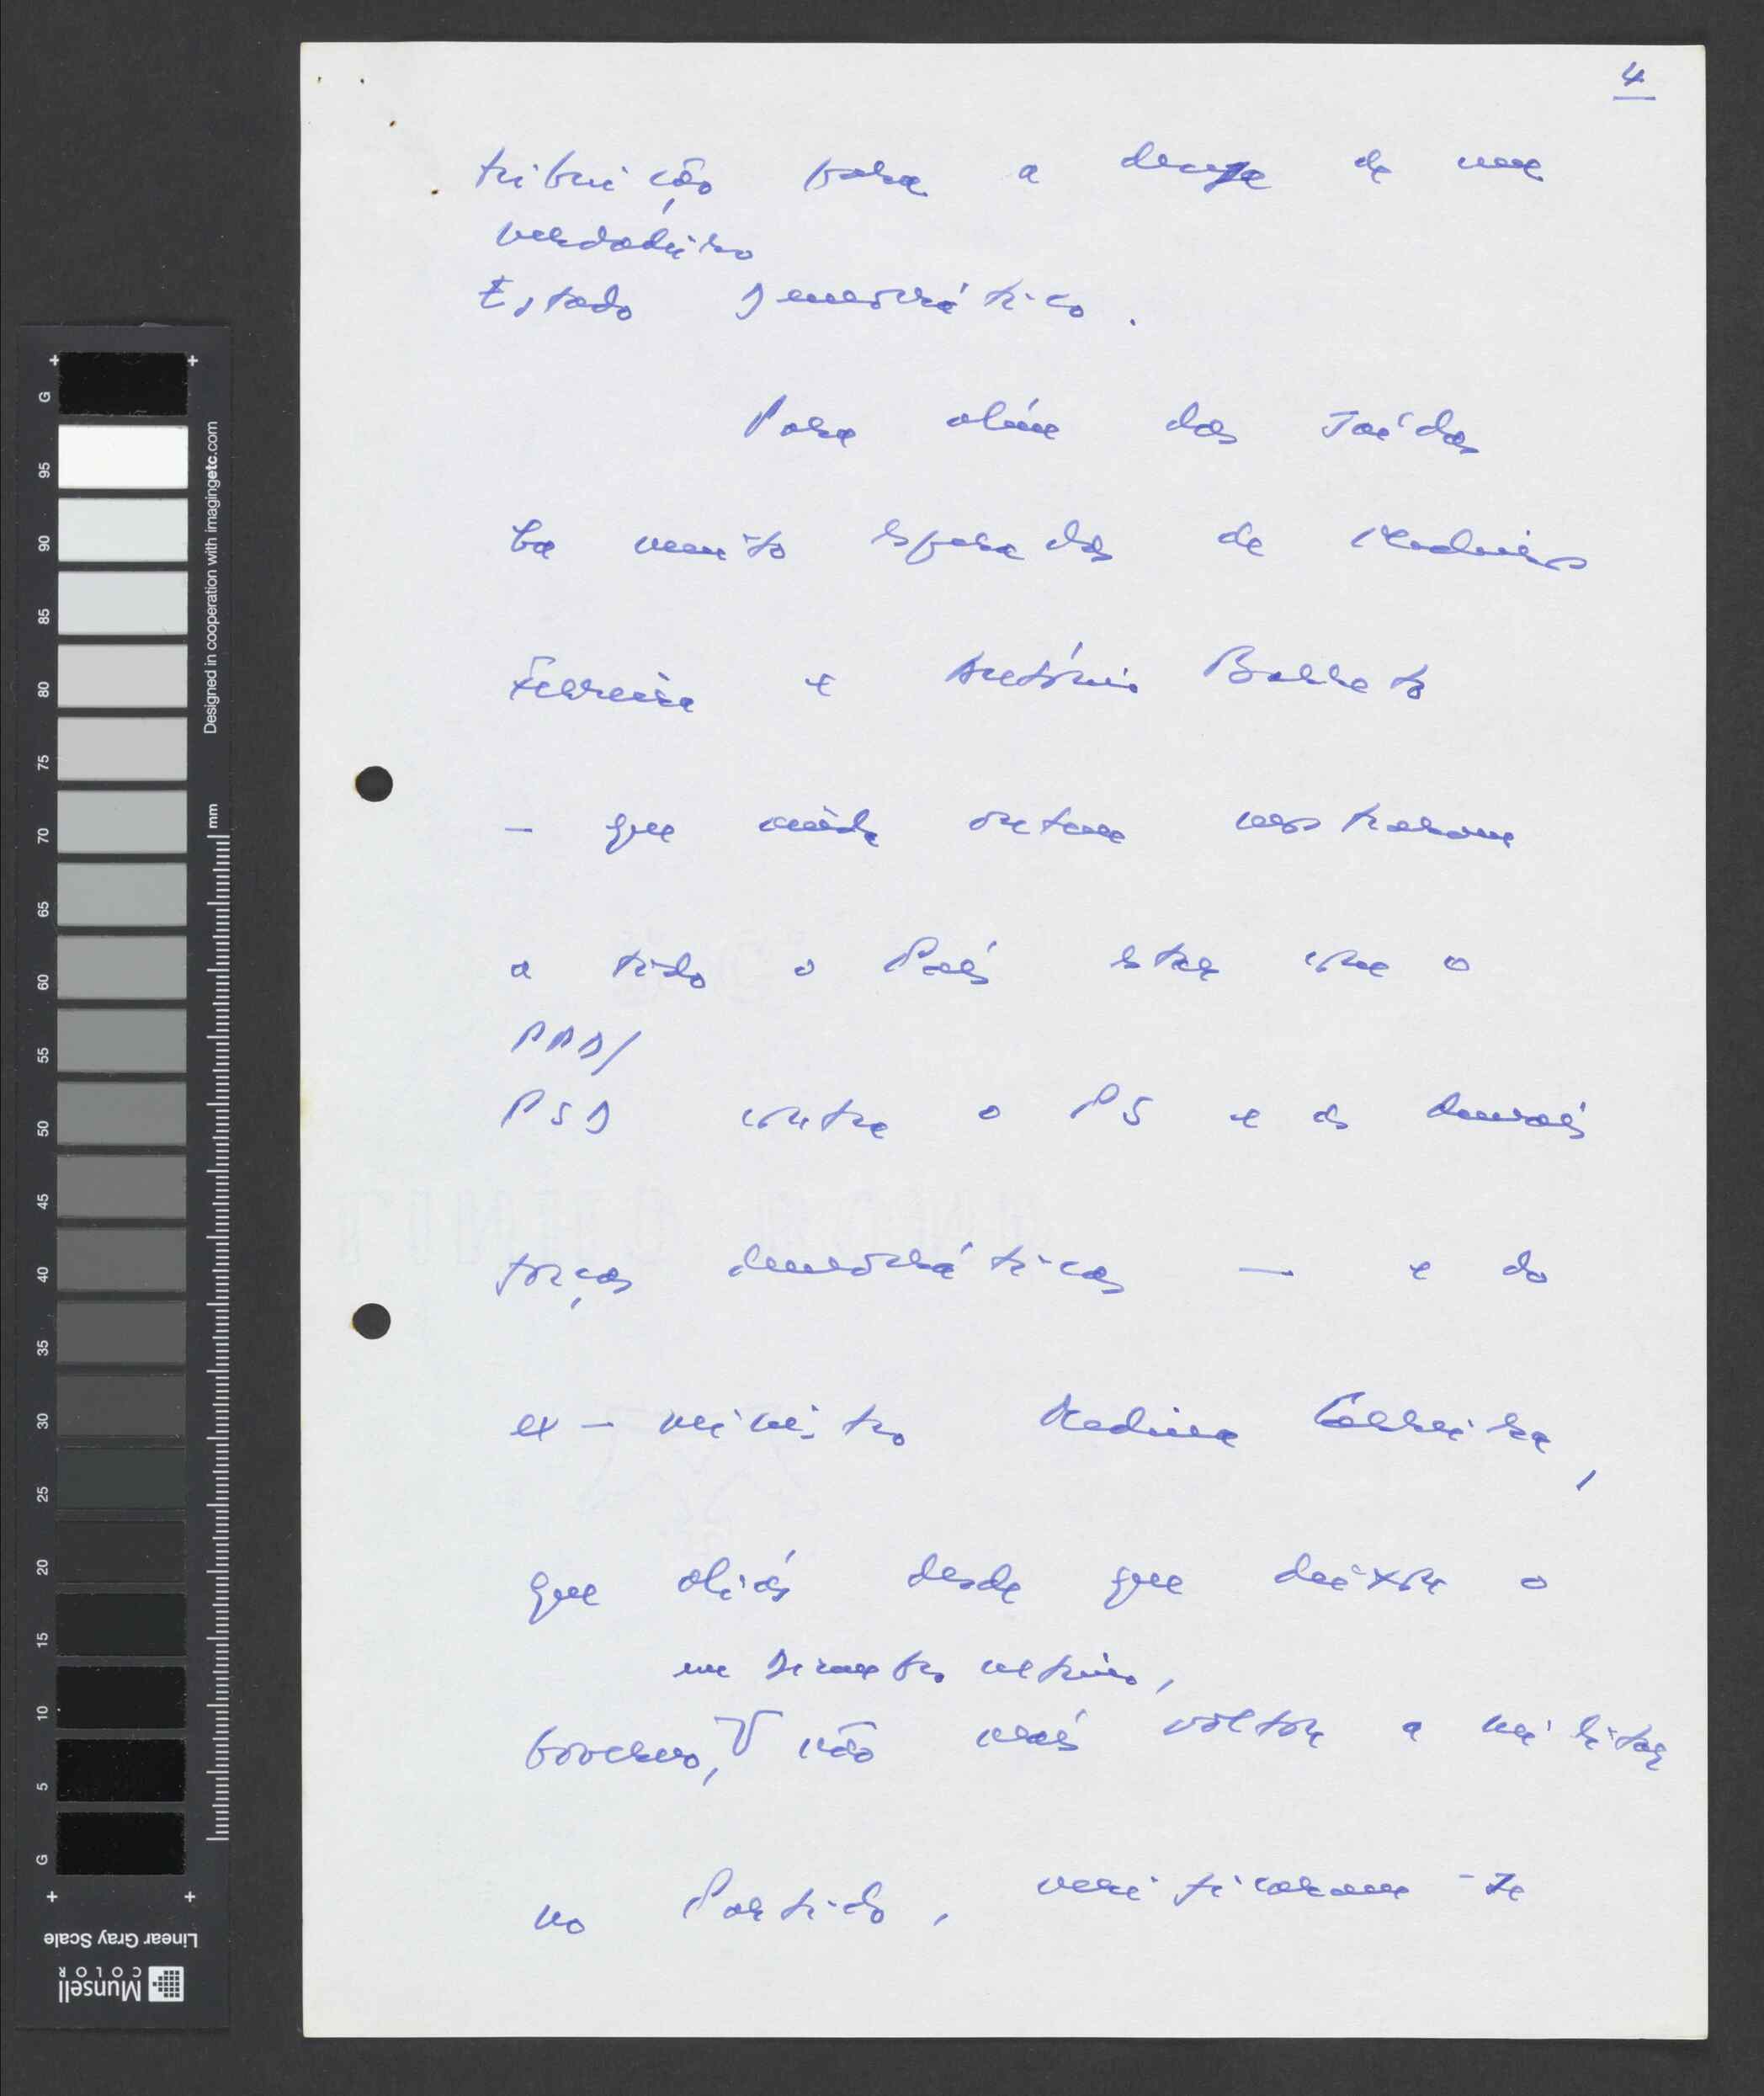 4
tribuição para a defesa de um
verdadeiro
Estado Democrático.
Para além das saídas
há muito esperadas de Medeiros
Ferreira e António Barreto
- que ainda ontem mostraram
a todo o País estar com o
PPD/
PSD contra o PS e as demais
forças democráticas — e do
ex-ministro Medina Carreira,
que aliás desde que deixou o
em Dezembro último,
Governo, não mais voltou a militar
no Partido, verificaram-se
G 95 90 85 80 75 70 65 60 55 50 45 40 35 30 25 20 15 10 5 G
Designed in cooperation with imagingetc.com
mm
Linear Gray Scale
Munsell
COLOR